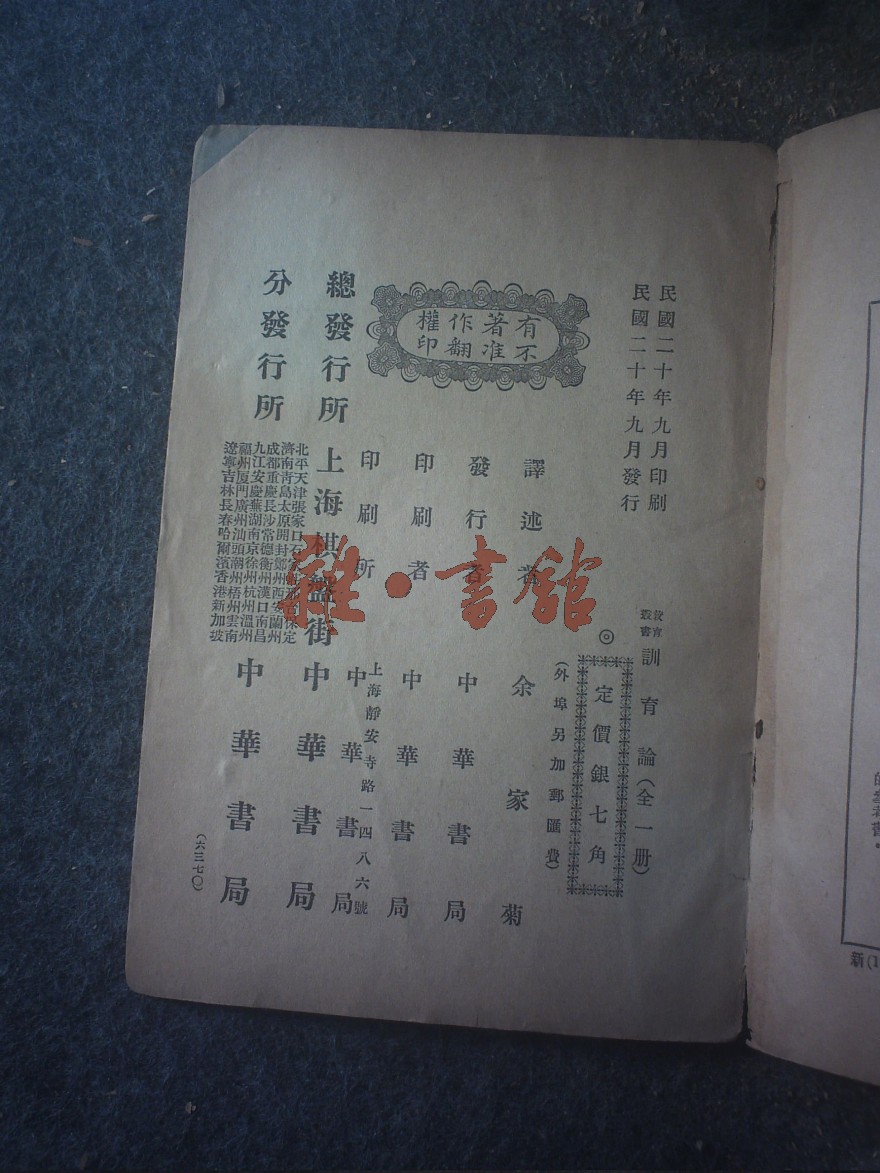 民國二十年九月印刷
民國二十年九月發行
教育叢書 訓育論(全一册)
◎定價銀七角
(外埠另加郵匯費)
有著作權
不准翻印
譯述者 余家菊
發行者 中華書局
印刷者 中華書局
印刷所 上海靜安寺路一四八六號
中華書局
總發行所 上海棋盤街 中華書局
分發行所
北平天津張家口石家台保定
濟南青島太原開封鄭州西安蘭州
成都重慶長沙常德衡州漢口南昌
九江安慶蕪湖南京徐州杭州溫州
福州厦門廣州汕頭潮州梧州雲南
遼寧吉林長春哈爾濱香港新加坡
中華書局
(六三七〇)
雜·書館
新(1